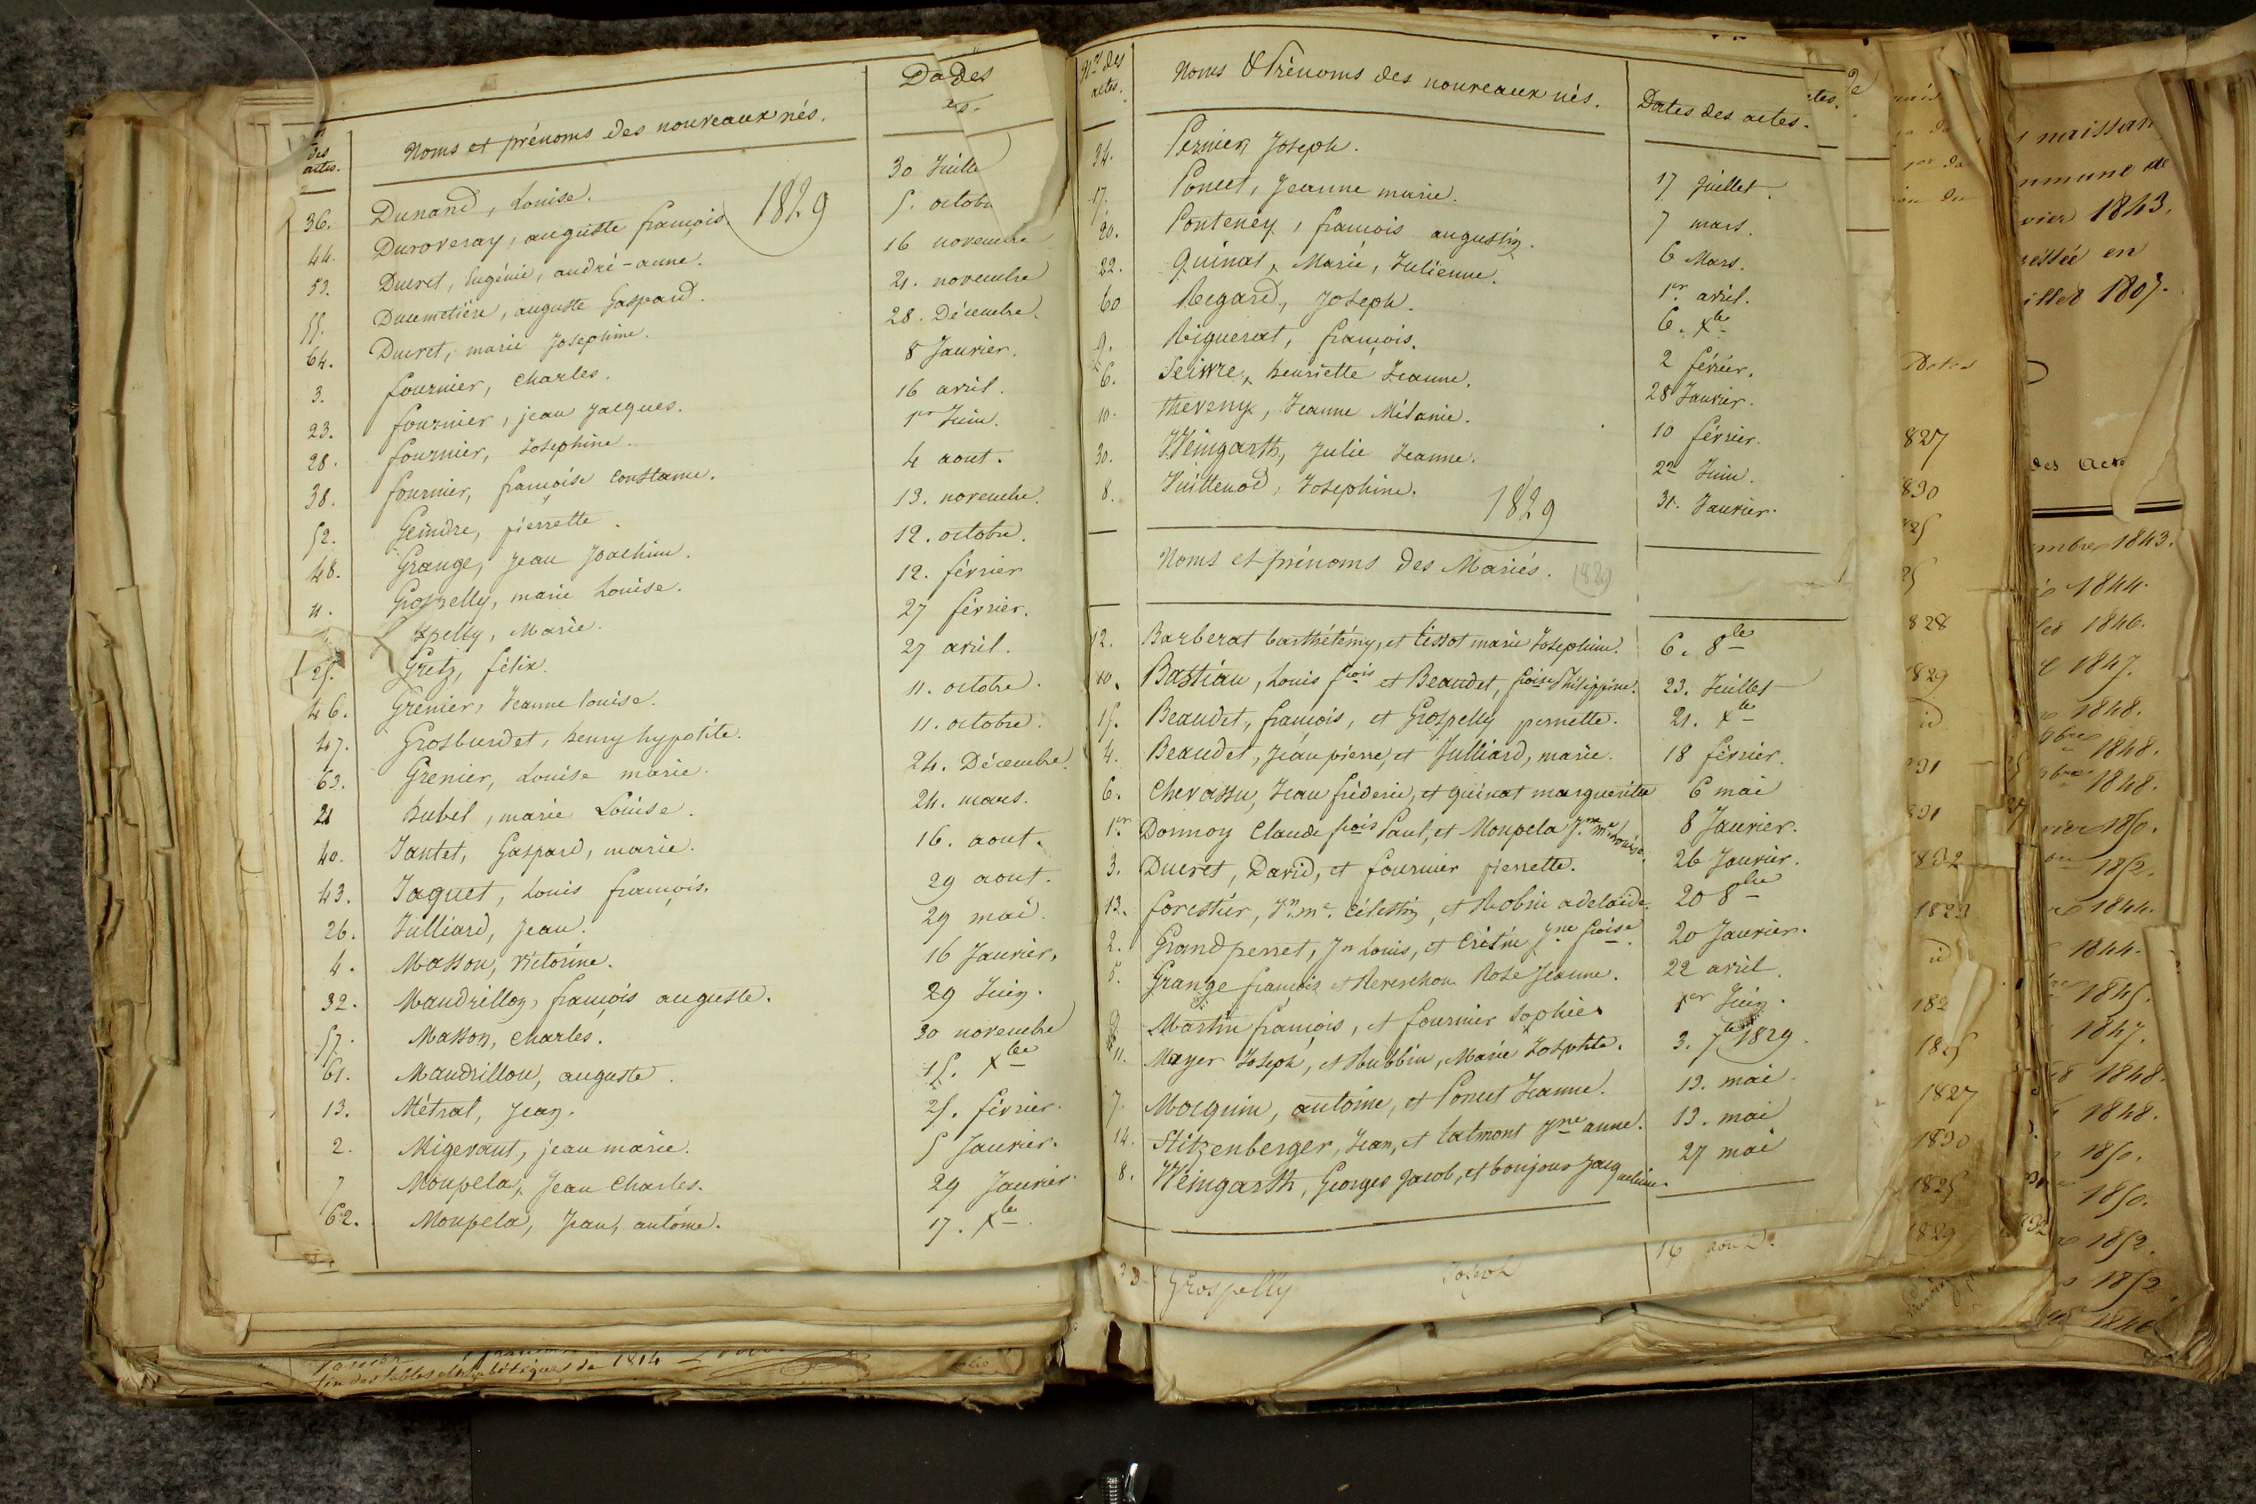 des actes.
Noms et prénoms des nouveaux nés.
Dates
36. Dunand, Louise. 30 Juille
44. Duroveray, auguste françois 1829 5. octobr
53. Ducret, Eugénie, andré-anne. 16 novembre
55. Ducimetière, auguste Gaspard. 21. novembre
64. Ducret, marie Josephine. 28. Décembre.
3. fournier, Charles. 8 Janvier.
23. fournier, jean Jacques. 16 avril.
28. fournier, Josephine. 1er Juin.
38. fournier, françoise Constance. 4 aout.
52. Geindre, pierrette. 13. novembre.
48. Grange, Jean Joachim. 12. octobre.
11. Grospelly, marie Louise. 12. février
spelly, Marie. 27 février.
25. Gretz, félix. 27 avril.
46. Grenier, Jeanne Louise. 11. octobre.
47. Grosburdet, henry hypolite. 11. octobre.
63. Grenier, Louise marie. 24. Décembre.
21 hubel, marie Louise. 24. mars.
40. Jantet, Gaspard, marie. 16. aout.
43. Jaquet, Louis françois. 29 aout.
26. Julliard, Jean. 29 mai.
4. Masson, victorine. 16 Janvier.
32. Maudrillon, françois auguste. 29 Juin.
57. Masson, Charles. 30 novembre
61. Maudrillon, auguste. 15. Xbre
13. Métral, Jean. 25. février.
2. Migerant, jean marie. 5 Janvier.
7 Monpela, Jean Charles. 29 Janvier.
62. Monpela, Jean, antoine. 17. Xbre.
fin des tables alphabétiques de 1814
Nos des actes.
Noms & Prénoms des nouveaux nés.
Dates des actes.
34. Pernier Joseph. 17 Juillet.
17. Poncet, Jeanne marie. 7 mars.
20. Ponteney, françois augustin. 6 Mars.
22. Quinat, Marie, Julienne. 1er avril.
60 Regard, Joseph. 6. Xbre
9. Riguerat, françois. 2 février.
6. Seivre, henriette Jeanne. 28 Janvier.
10. thevenx, Jeanne Mélanie. 10 février.
30. Weingarth, Julie Jeanne. 22 Juin.
8. Vuillenod, Josephine. 1829 31. Janvier.
Noms et prénoms des Mariés. 1829
12. Barberat barthélémy, et tissot marie Josephine. 6. 8bre
10. Bastian, Louis frois et Beaudet, froise Philippine. 23. Juillet
15. Beaudet, françois, et Grospelly pernette. 21. Xbre
4. Beaudet, Jean pierre, et Julliard, marie. 18 février.
6. Chevassu, Jean fréderic, et quinat marguerite 6 mai
1er Donnoy Claude frois Paul, et Monpela Jne mie Louise. 8 Janvier.
3. Ducret, David, et fournier pierrette. 26 Janvier.
13. forestier, Jn. me. Célestin, et Robin adelaide. 20 8bre
2. Grandperret, Jn Louis, et Crétin Jne froise. 20 Janvier.
5. Grange françois et Reverchon Rose Jeanne. 22 avril.
9 Martin françois, et fournier Sophie. 1er Juin.
11. Mayer Joseph, et Rubbin, Marie Josephte. 3. 7bre 1829.
7. Mocquin, antoine, et Poncet Jeanne. 13. mai.
14. Stitzenberger, Jean, et talmont Jne anne. 13. mai
8. Weingarth, Georges Jacob, et bonjour Jacqueline. 27 mai
Grospelly Joseph 16
827
830
828
1829
id
1832
1823
id
182
1825
1827
1830
1825
1829
naissan
mmune de
vier 1843.
en
illet 1807.
des Acte
mbre 1843.
1844.
1846.
1847.
1848.
1848.
1848.
1850.
1852.
1844.
1844.
1845.
1847.
1848.
1848.
1850.
1850.
1852.
1852